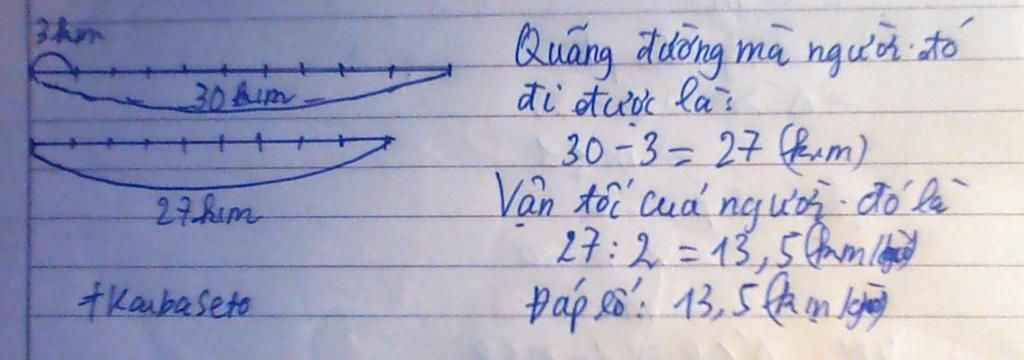 3km
30km
27km
+KaibaSeto
Quãng đường mà người đó
đi được là:
30 - 3 = 27 (km)
Vận tốc của người đó là
27 : 2 = 13,5 (km/giờ)
Đáp số: 13,5 (km/giờ)